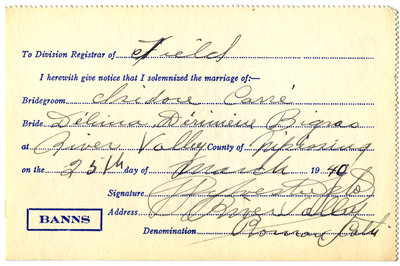 To Division Registrar of Field
I herewith give notice that I solemnized the marriage of:—
Bridegroom Isidore Carré
Bride Délina Bigras
at River Valley County of Nipissing
on the 25th day of March 1940
Signature
BANNS Address River Valley
Denomination Roman Cath